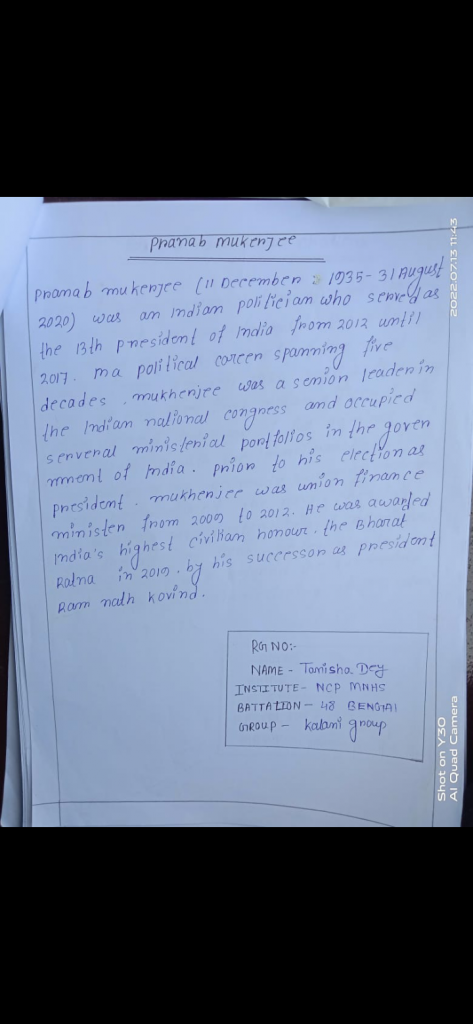 Pranab mukerjee
Pranab mukerjee (11 December : 1935 - 31 August
2020) was an Indian politician who served as
the 13th president of India from 2012 until
2017. ma political career spanning five
decades. mukherjee was a senior leader in
the Indian national congress and occupied
servenal ministerial portfolios in the goven
nment of India. prior to his election as
president. mukherjee was union finance
minister from 2009 to 2012. He was awarded
India's highest civilian honour. the Bharat
Ratna in 2019. by his successor as president
Ram nath kovind.
RG NO:-
NAME - Tanisha Dey
INSTITUTE - NCP MNHS
BATTALION - 48 BENGAL
GROUP - kalani group
2022.07.13 11:43
Shot on Y30
AI Quad Camera